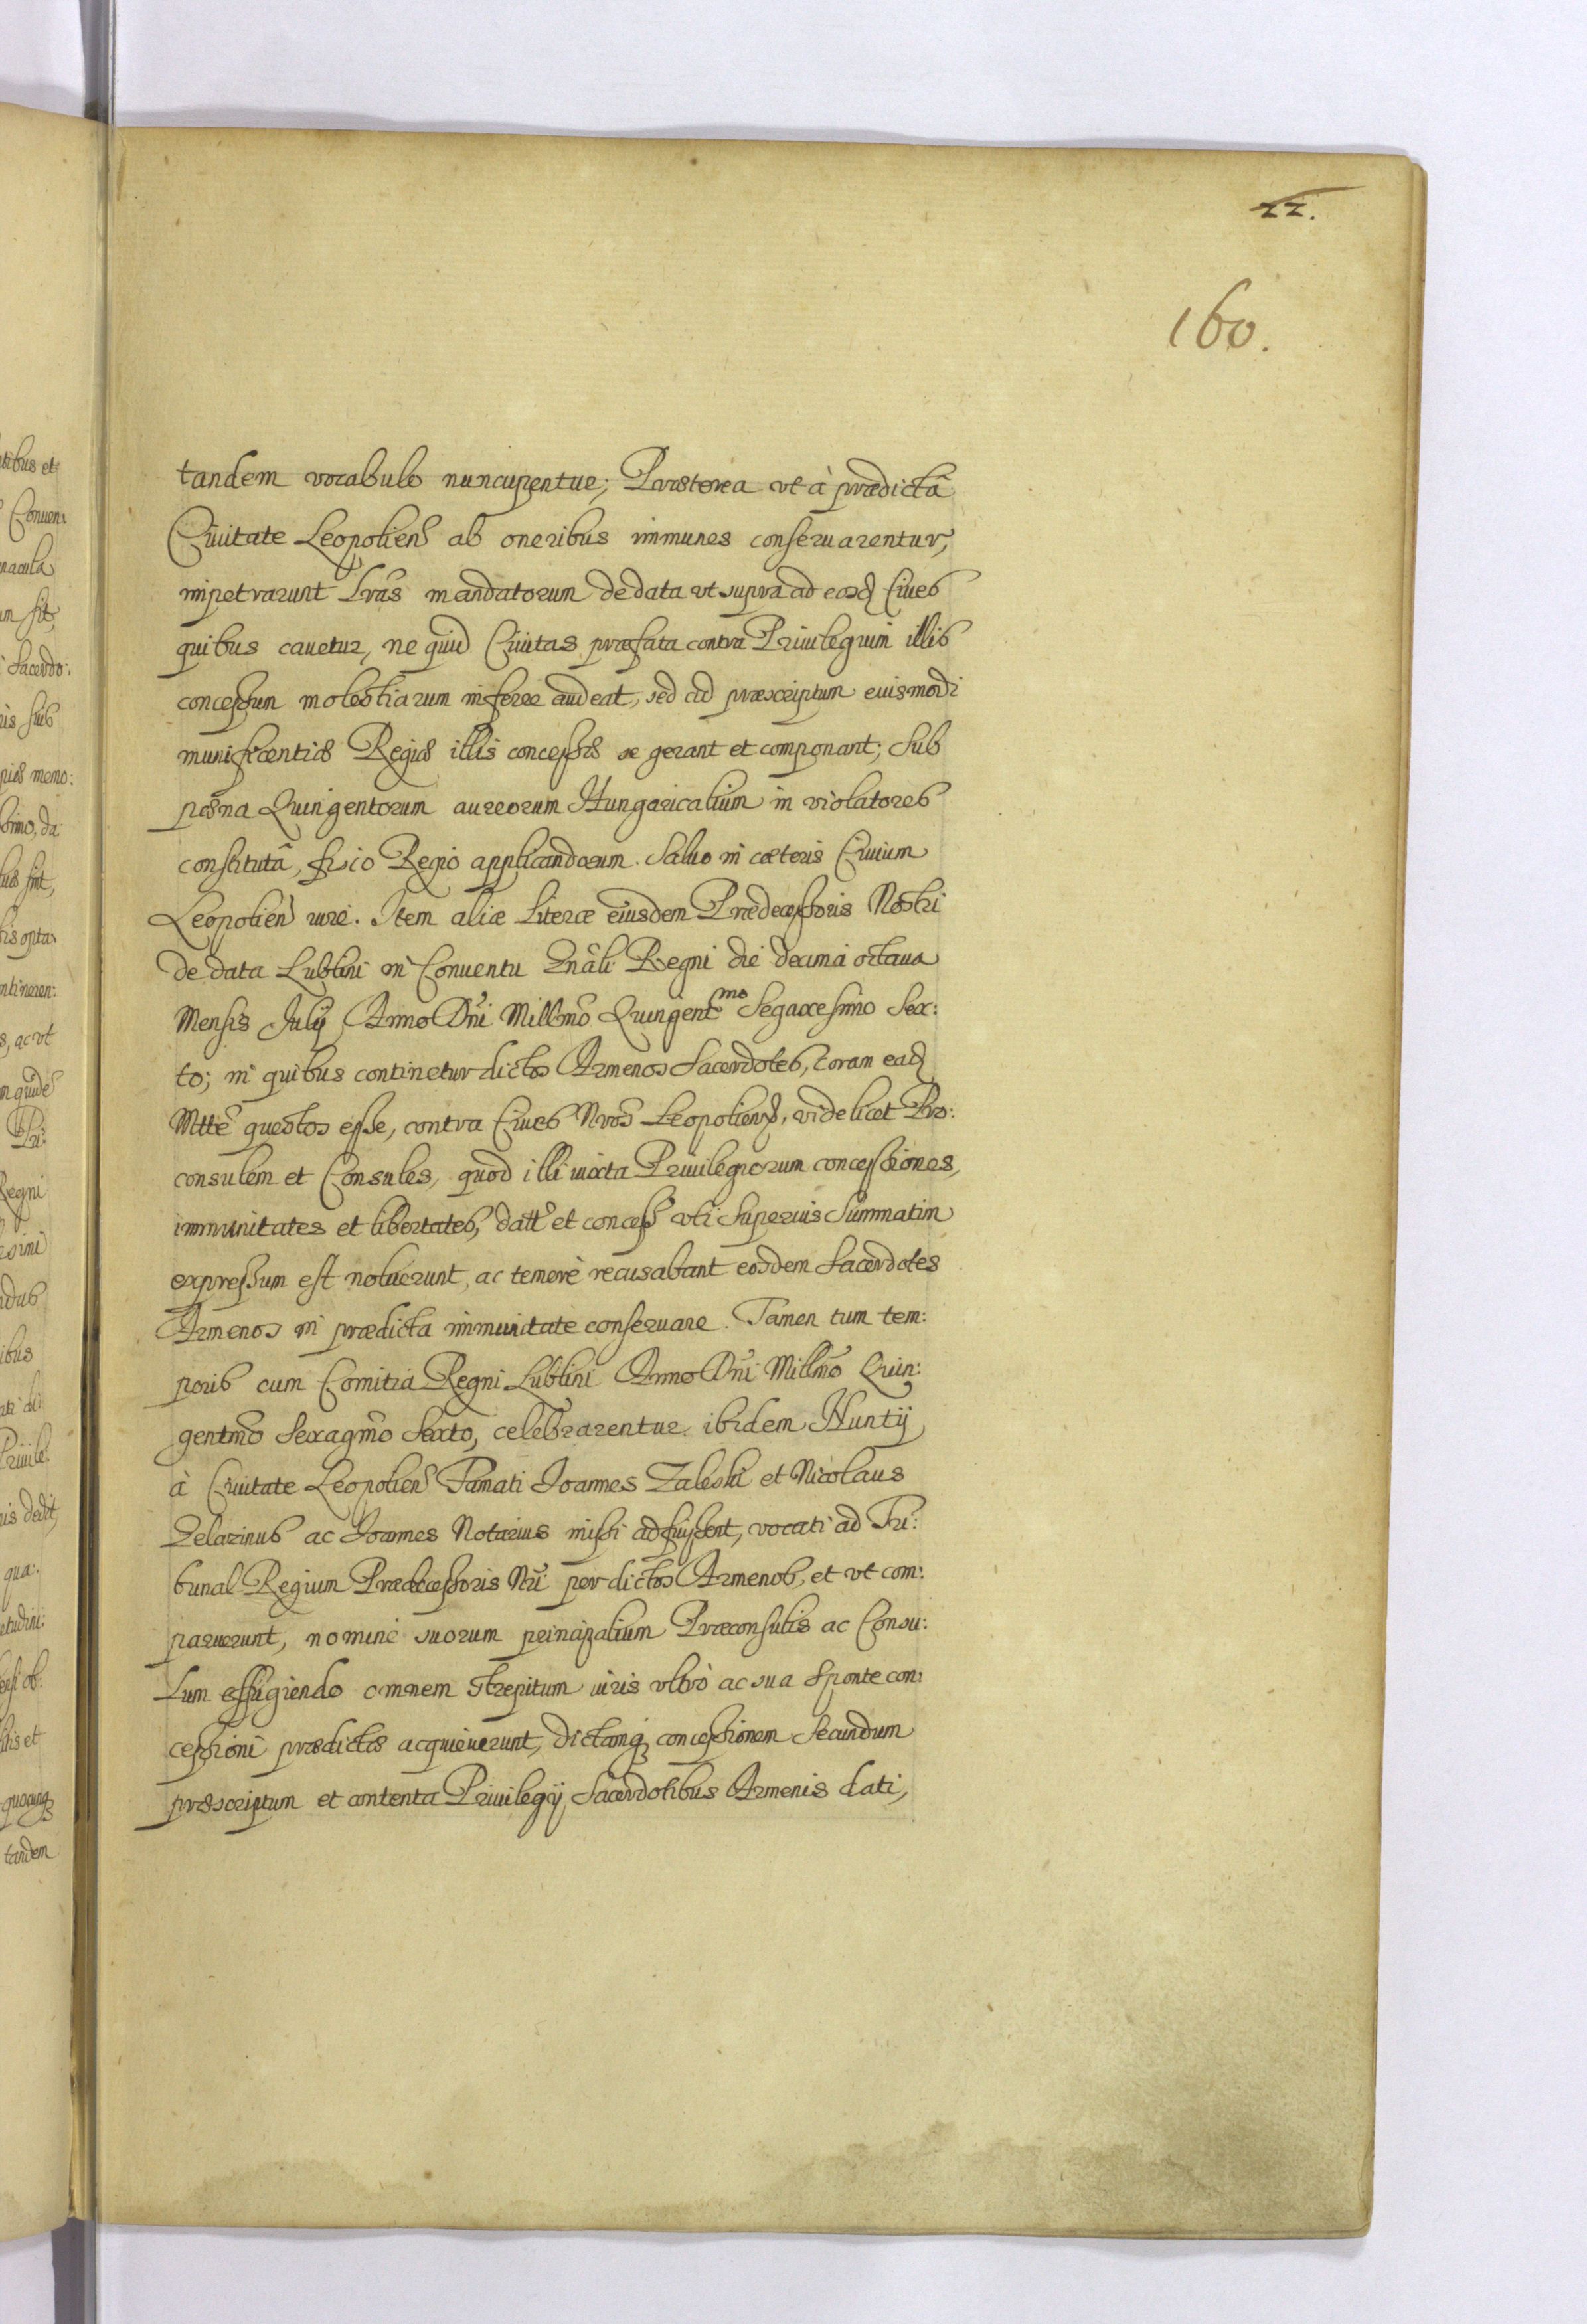 22.
160.
tandem vocabulo nuncupentur; Præterea vt à prædictâ
Ciuitate Leopolien̄ ab oneribus immunes conseruarentur,
impetrarunt Lrãs mandatorum de data vt supra ad eosd Ciues
quibus cauetur, ne quid Ciuitas præfata contra Priuilegium illis
concessum molestiarum inferre audeat, sed ad præscriptum euismodi
munificentiæ Regiæ illis concessæ se gerant et componant; Sub
pœna Quingentorum aureorum Hungaricalium in violatores
constitutâ, fisco Regio applicandorum. Saluo in cæteris Ciuium
Leopolien̄ iure. Item aliæ Literæ eiusdem Prædecessoris Nostri
de data Lublini in Conuentu Gnãli Regni die decima octaua
Mensis Julij Anno Dñi Millmõ Quingentmo Segaxesimo Sex:
to; in quibus continetur dictos Armenos Sacerdotes, coram ead
Mttẽ questos esse, contra Ciues Nrõs Leopolien̄, videlicet Pro:
consulem et Consules, quod illi iuxta Priuilegiorum concessiones,
immunitates et libertates, datt̄ et concess̄ vti superuis Summatim
expressum est noluerunt, ac temerè recusabant eosdem Sacerdotes
Armenos in prædicta immunitate conseruare. Tamen tum tem:
poris cum Comitia Regni Lublini Anno Dñi Millmõ Quin:
gentmõ Sexagmõ Sexto, celebrarentur ibidem Nuntij
à Ciuitate Leopolien̄ Famati Joannes Zaleski et Nicolaus
Zelazinus ac Joannes Notarius missi adfuissent, vocati ad Tri:
bunal Regium Prædecessoris Nrĩ per dictos Armenos, et vt com:
paruerunt, nomine suorum principalium Præconsulis ac Consu:
lum effugiendo omnem strepitum iuris vltrò ac sua Sponte con:
cessioni prædictæ acquieuerunt, dictamq concessionem Secundum
præscriptum et contenta Priuilegij Sacerdotibus Armenis dati,